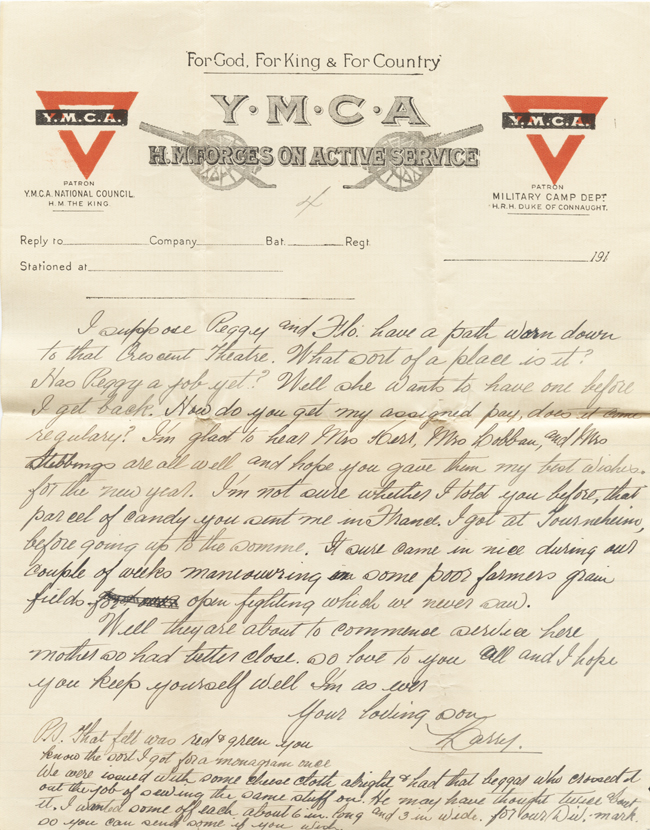 For God, For King & For Country
Y·M·C·A
H.M. FORCES ON ACTIVE SERVICE
Y.M.C.A.
PATRON
Y.M.C.A. NATIONAL COUNCIL.
H.M. THE KING.
Y.M.C.A.
PATRON
MILITARY CAMP DEPT
H.R.H. DUKE OF CONNAUGHT.
4
Reply to Company Bat. Regt.
Stationed at
191
I suppose Peggy and Flo. have a path worn down
to that Crescent Theatre. What sort of a place is it?
Has Peggy a job yet? Well she wants to have one before
I get back. How do you get my assigned pay, does it come
regulary? I'm glad to hear Mrs Kerr, Mrs and Mrs
Stebbings are all well and hope you gave them my best wishes.
for the new year. I'm not sure whether I told you before, that
parcel of candy you sent me in France. I got at
before going up to the somme. It sure came in nice during our
couple of weeks maneouvering in some poor farmers grain
fields. open fighting which we never saw.
Well they are about to commence service here
mother so had better close. so love to you all and I hope
you keep yourself well I'm as ever
Your loving son
Harry.
P.S. That felt was red & green you
know the sort I got for a monagram once
We were issued with some cheese cloth alright & had that beggar who croused it
out the job of sewing the same stuff on. He may have thought twice about
it. I wanted some of each about 6 in. long and 3 in wide. for our Div. mark.
so you can send some if you